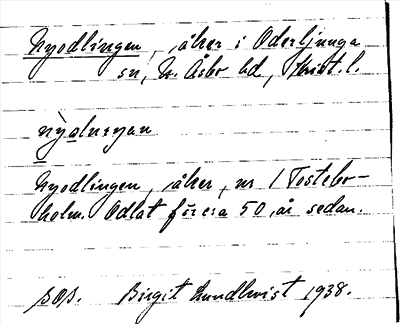 Nyodlingen, åker i Oderljunga
sn, N. Åsbo hd, Krist. l.
nỳolnngan
Nyodlingen, åker, nr 1 Tostebo-
holm. Odlat för ca 50 år sedan.
SOB. Birgit Lundkvist 1938.